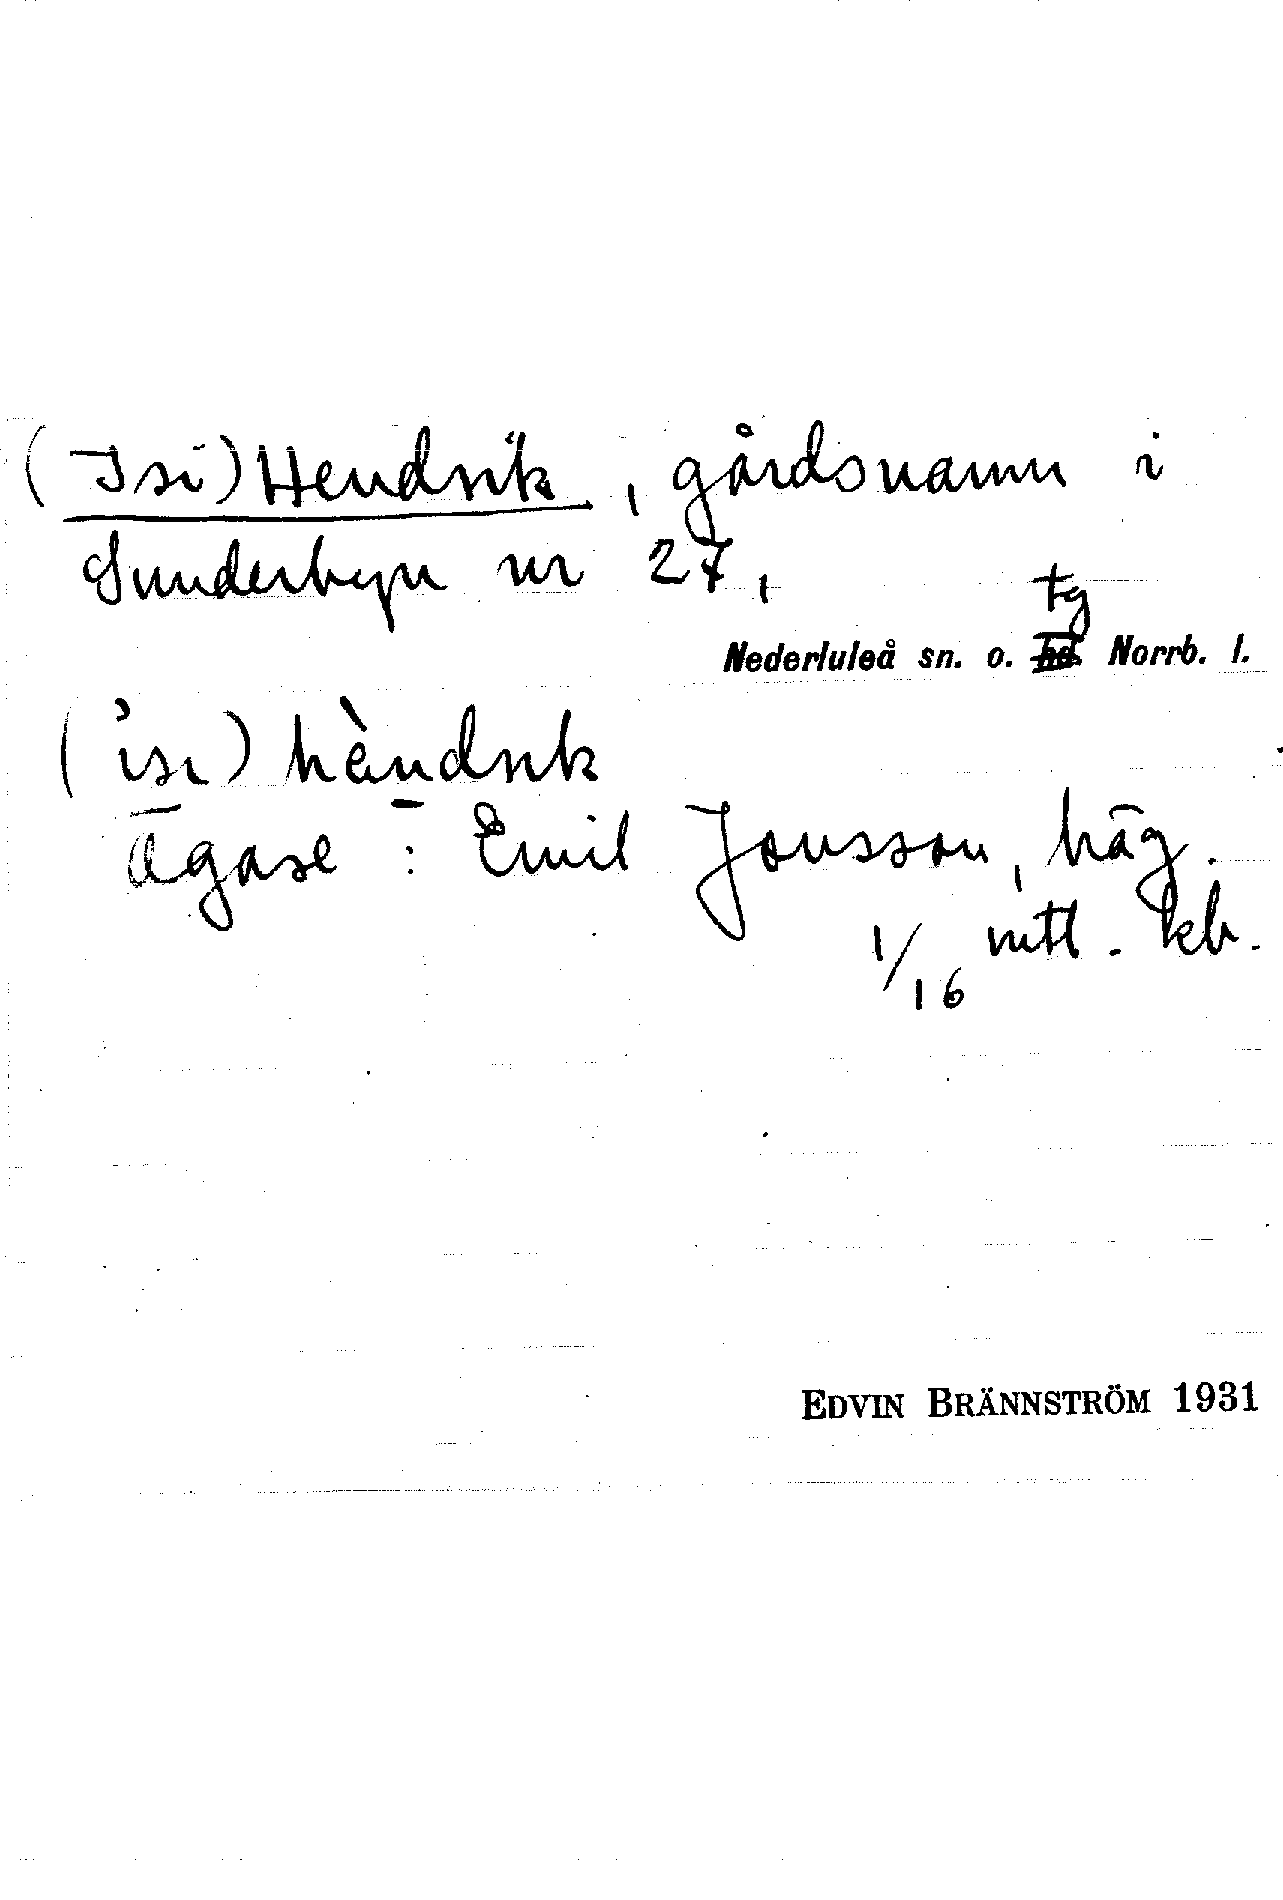 (Isi)Hendrik, gårdsnamn i
Sunderbyn nr 27,
tg
Nederluleå sn. o. hd. Norrb. l.
(ìsı) hèndrık
Ägare: Emil Jonsson, häg.
1/16 mtl. kb.
EDVIN BRÄNNSTRÖM 1931